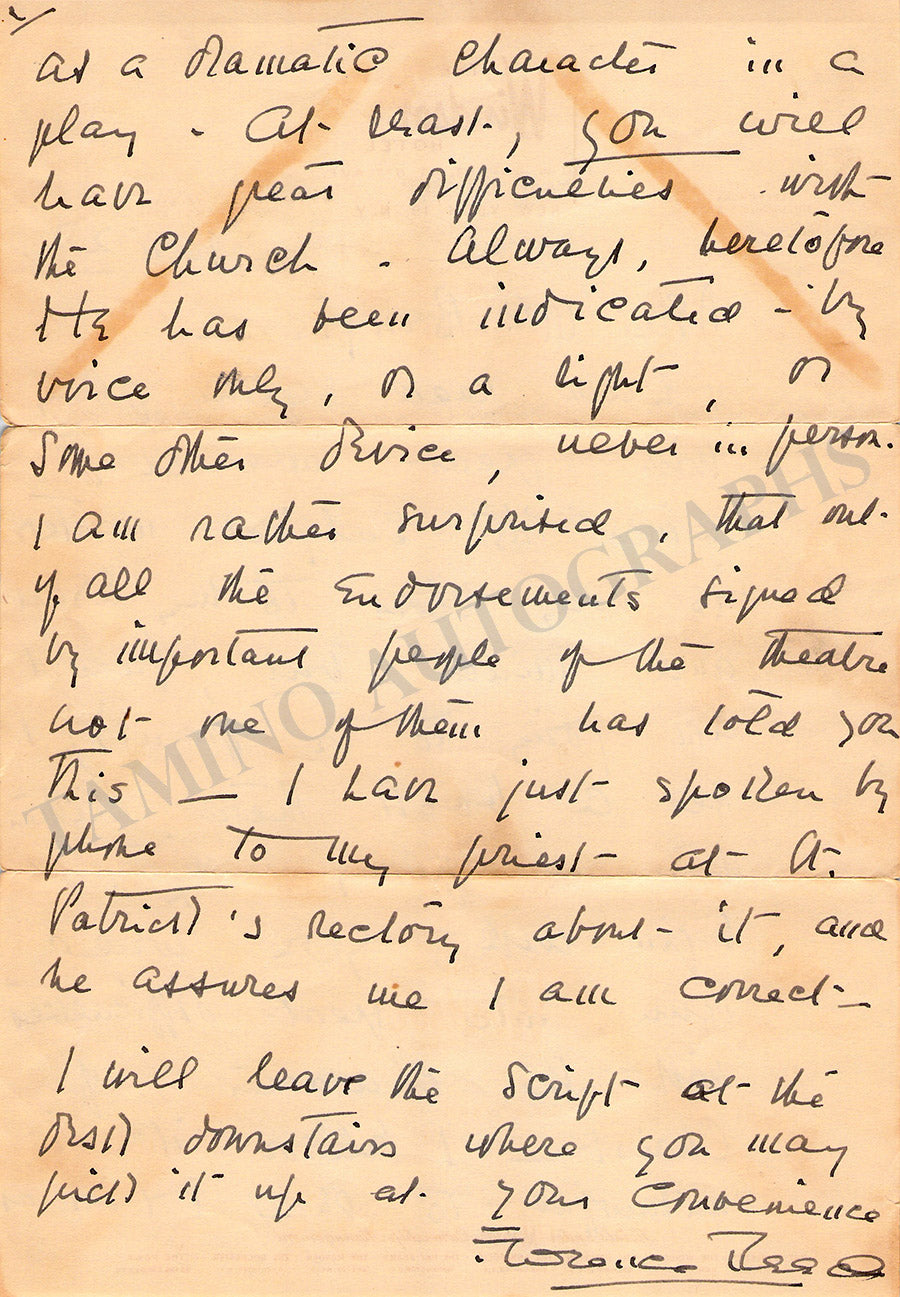 2/
as a dramatic character in a
play - At least, you will
have great difficulties with
the Church - Always, heretofore
He has been indicated - by
voice only, or a light, or
some other device, never in person.
I am rather surprised, that out
of all the Endorsements signed
by important people of the theatre
not one of them has told you
this — I have just spoken by
phone to my priest at St.
Patrick's rectory about it, and
he assures me I am correct —
I will leave the script at the
desk downstairs where you may
pick it up at your convenience
Florence Reed
TAMINO AUTOGRAPHS